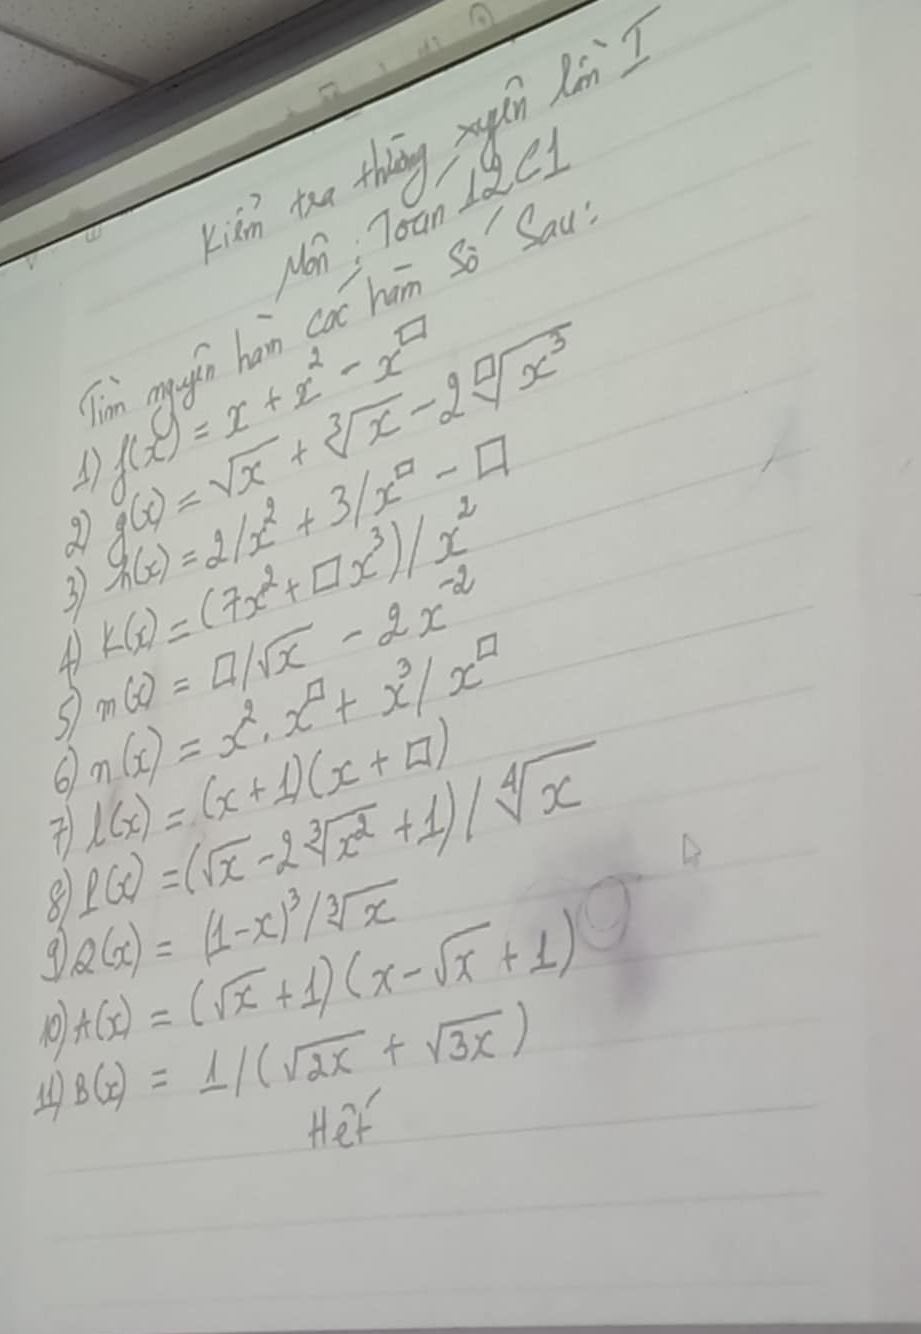 Kiểm tra thường xuyên lần I
Môn: Toán 12C1
Tìm nguyên hàm các hàm số sau:
1) f(x) = x + x² - x^□
2) g(x) = √x + ∛x - 2 □√x³
3) h(x) = 2/x² + 3/x^□ - □
4) K(x) = (7x² + □x³)/x²
5) m(x) = □/√x - 2x⁻²
6) n(x) = x² . x^□ + x³/x^□
7) l(x) = (x+1)(x+□)
8) P(x) = (√x - 2∛x² + 1)/∜x
9) Q(x) = (1-x)³/∛x
10) A(x) = (√x + 1)(x - √x + 1)
11) B(x) = 1/(√2x + √3x)
Hết